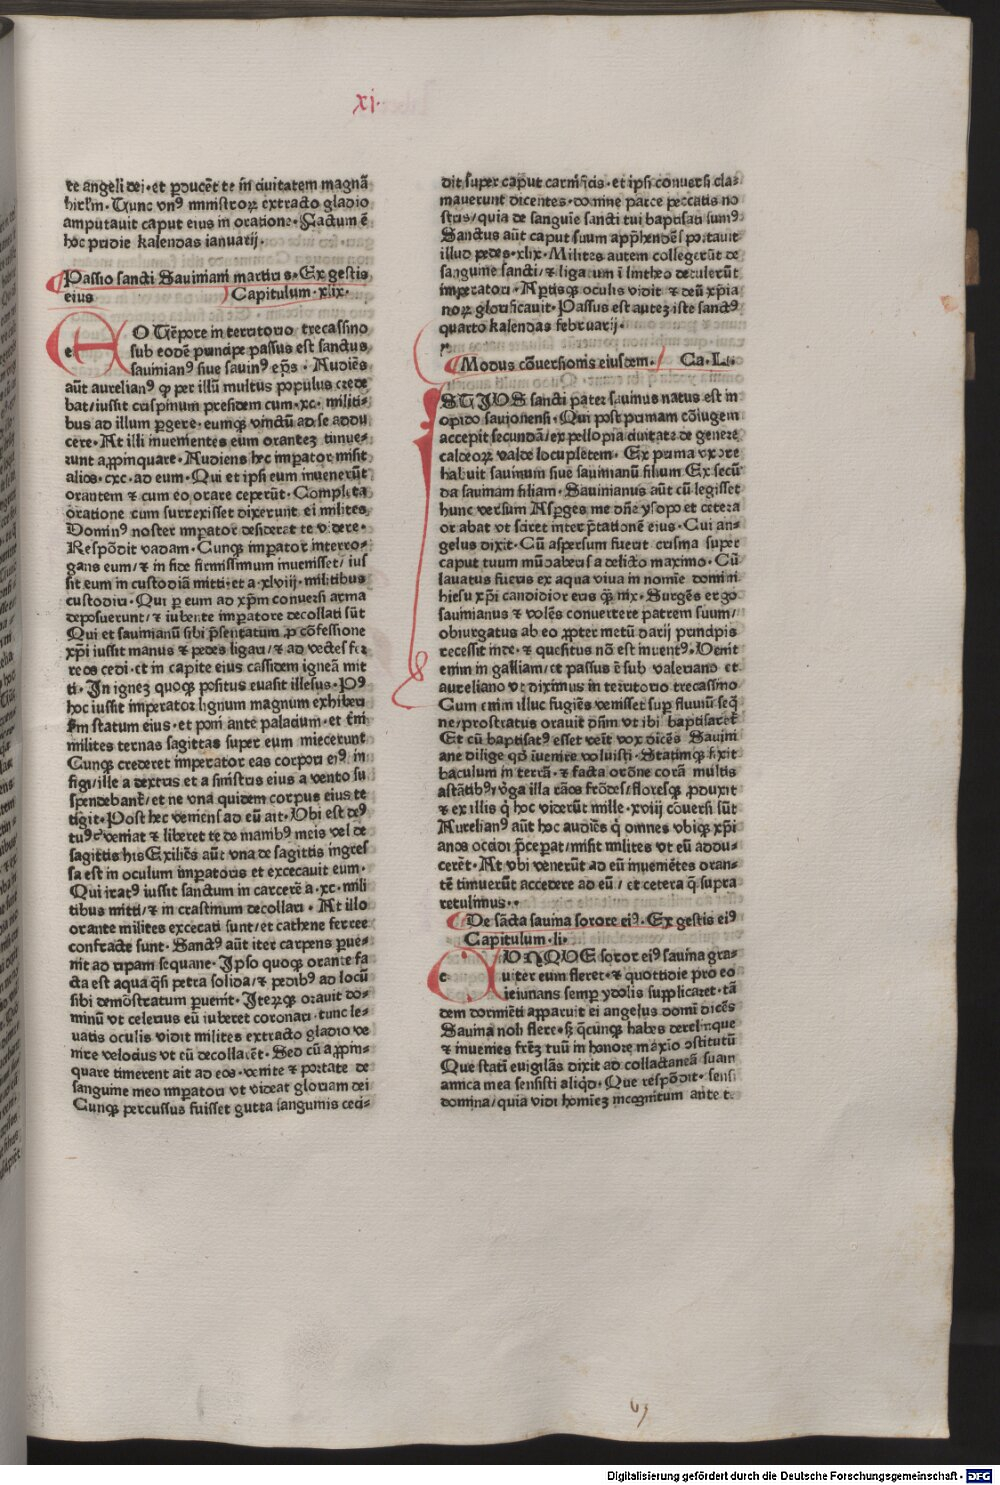 xi.
te angeli dei·et ꝑducēt te in ciuitatem magnā
hirlm̄·Tunc vnꝰ ministroꝝ extracto gladio
amputauit caput eius in oratione·Factum ē
hoc pridie kalendas ianuarij·
Passio sancti Sauiniani martiris·Ex gestis
eius Capitulum·xlix·
EO Tēpore in territorio trecassino
sub eodē principe passus est sanctus
sauinianꝰ siue sauinꝰ ep̄s·Audiēs
aūt aurelianꝰ ꝙ per illū multus populus crede
bat/iussit crispinum presidem cum·xc·militi-
bus ad illum ꝑgere·eumqꝫ vinctū ad se addu
cere·At illi inuenientes eum orantez timue-
runt aꝓpinquare·Audiens hec imꝑator misit
alios·cxc·ad eum·Qui et ipsi eum inuenerūt
orantem ⁊ cum eo orare ceperūt·Completa
oratione cum surrexisset dixerunt ei milites
Dominꝰ noster imꝑator desiderat te videre·
Respōdit vadam·Cunqꝫ imꝑator interro-
gans eum/⁊ in fide firmissimum inuenisset/ius
sit eum in custodiā mitti·et a·xlviij·militibus
custodiri·Qui ꝑ eum ad xp̄m conuersi arma
deposuerunt/⁊ iubente imperatore decollati sūt
Qui et sauinianū sibi p̄sentatum ꝓ cōfessione
xp̄i iussit manus ⁊ pedes ligari/⁊ ad vectes fer
reos cedi·et in capite eius cassidem igneā mit
ti·In ignez quoqꝫ positus euasit illesus·Pꝰ
hoc iussit imperator lignum magnum exhiberi
sm̄ statum eius·et poni ante palacium·et
milites ternas sagittas super eum miecerunt
Cunqꝫ crederet imperator eas corpori eiꝰ in
figi/ille a dextris et a sinistris eius a vento su
spendebant᷑/et ne vna quidem corpus eius te
tigit·Post hec veniens ad eū ait·Vbi est deꝰ
tuꝰ veniat ⁊ liberet te de manibꝰ meis vel de
sagittis his Exiliēs aūt vna de sagittis ingres
sa est in oculum imꝑatoris et excecauit eum·
Qui iratꝰ iussit sanctum in carcerē a·xc·mili
tibus mitti/⁊ in crastinum decollari·At illo
orante milites excecati sunt/et cathene ferree
confracte sunt·Sanctꝰ aūt iter carpens ꝑue-
nit ad ripam sequane·Ipso quoqꝫ orante fa
cta est aqua qͣsi petra solida/⁊ pedibꝰ ad locū
sibi demōstratum ꝑuenit·Iterūqꝫ orauit do-
minū vt celerius eū iuberet coronari·tunc le-
uatis oculis vidit milites extracto gladio ve
nire velocius vt eū decollarēt·Sed cū aꝓpin-
quare timerent ait ad eos·venite ⁊ portate de
sanguine meo imꝑatori vt videat gloriam dei
Cunqꝫ percussus fuisset gutta sanguinis ceci-
dit super caput carnificis·et ipsi conuersi cla-
mauerunt dicentes·domine parce peccatis no
stris/quia de sanguīe sancti tui baptisati sumꝰ
Sanctus aūt caput suum app̄hendēs portauit
illud pedes·xlix·Milites autem collegerūt de
sanguine sancti/⁊ ligatum ī lintheo detulerūt
imperatori·Aꝑtisqꝫ oculis vidit ⁊ deū xp̄ia
noꝝ glorificauit·Passus est autez iste sanctꝰ
quarto kalendas februarij·
Modus cōuersionis eiusdem· Ca·L·
ISTIVS sancti pater sauinus natus est in
opido sauionensi·Qui post primam cōiugem
accepit secundā/ex pellopia ciuitate de genere
caldeoꝝ valde locupletem·Ex prima vxore
habuit sauinum siue sauinianū filium Ex secū
da sauinam filiam·Sauinianus aūt cū legisset
hunc versum Asꝑges me dn̄e ysopo et cetera
orabat vt sciret interp̄tationē eius·Cui an-
gelus dixit·Cū aspersum fuerit crisma super
caput tuum mūdaberis a delicto maximo·Cū
lauatus fueris ex aqua viua in nomīe domini
hiesu xp̄i candidior eris qͣꝫ nix·Surgēs ergo
sauinianus ⁊ volēs conuertere patrem suum/
obiurgatus ab eo ꝓpter metū darij principis
recessit inde·⁊ quesitus nō est inuentꝰ·Venit
enim in galliam/et passus ē sub valeriano et
aureliano vt diximus in territorio trecassino
Cum enim illuc fugiēs venisset suꝑ fluuiū seq̄
ne/prostratus orauit dn̄m vt ibi baptisaret᷑
Et cū baptisatꝰ esset venit vox dicēs Sauini
ane dilige qd̄ inuenire voluisti·Statimqꝫ fixit
baculum in terrā·⁊ facta orōne corā multis
astātibꝰ/vꝰga illa ramos frōdes/floresqꝫ ꝓduxit
⁊ ex illis q̄ hoc viderūt mille·xviij cōuersi sūt
Aurelianꝰ aūt hoc audiēs q̇ omnes vbiqꝫ xp̄i
anos occidi p̄ceperat/misit milites vt eū addu-
cerēt·At vbi venerūt ad eū inueniētes oran-
tē timuerūt accedere ad eū/et cetera q̄ supra
retulimus··
De sācta sauina sorore eiꝰ·Ex gestis eiꝰ
Capitulum·li·
CVNQVE soror eiꝰ sauina gra-
uiter eum fleret·⁊ quottidie pro eo
ieiunans semꝑ ydolis supplicaret·tā
dem dormiēti apparuit ei angelus domī dicēs
Sauina noli flere·sꝫ qͤcunqꝫ habes derelinque
⁊ inuenies frēz tuū in honore maxīo ↄstitutū
Que statī euigilās dixit ad collactaneā suam
amica mea sensisti aliqd·Que respōdit·sensi
domina/quia vidi homīez incognitum ante t